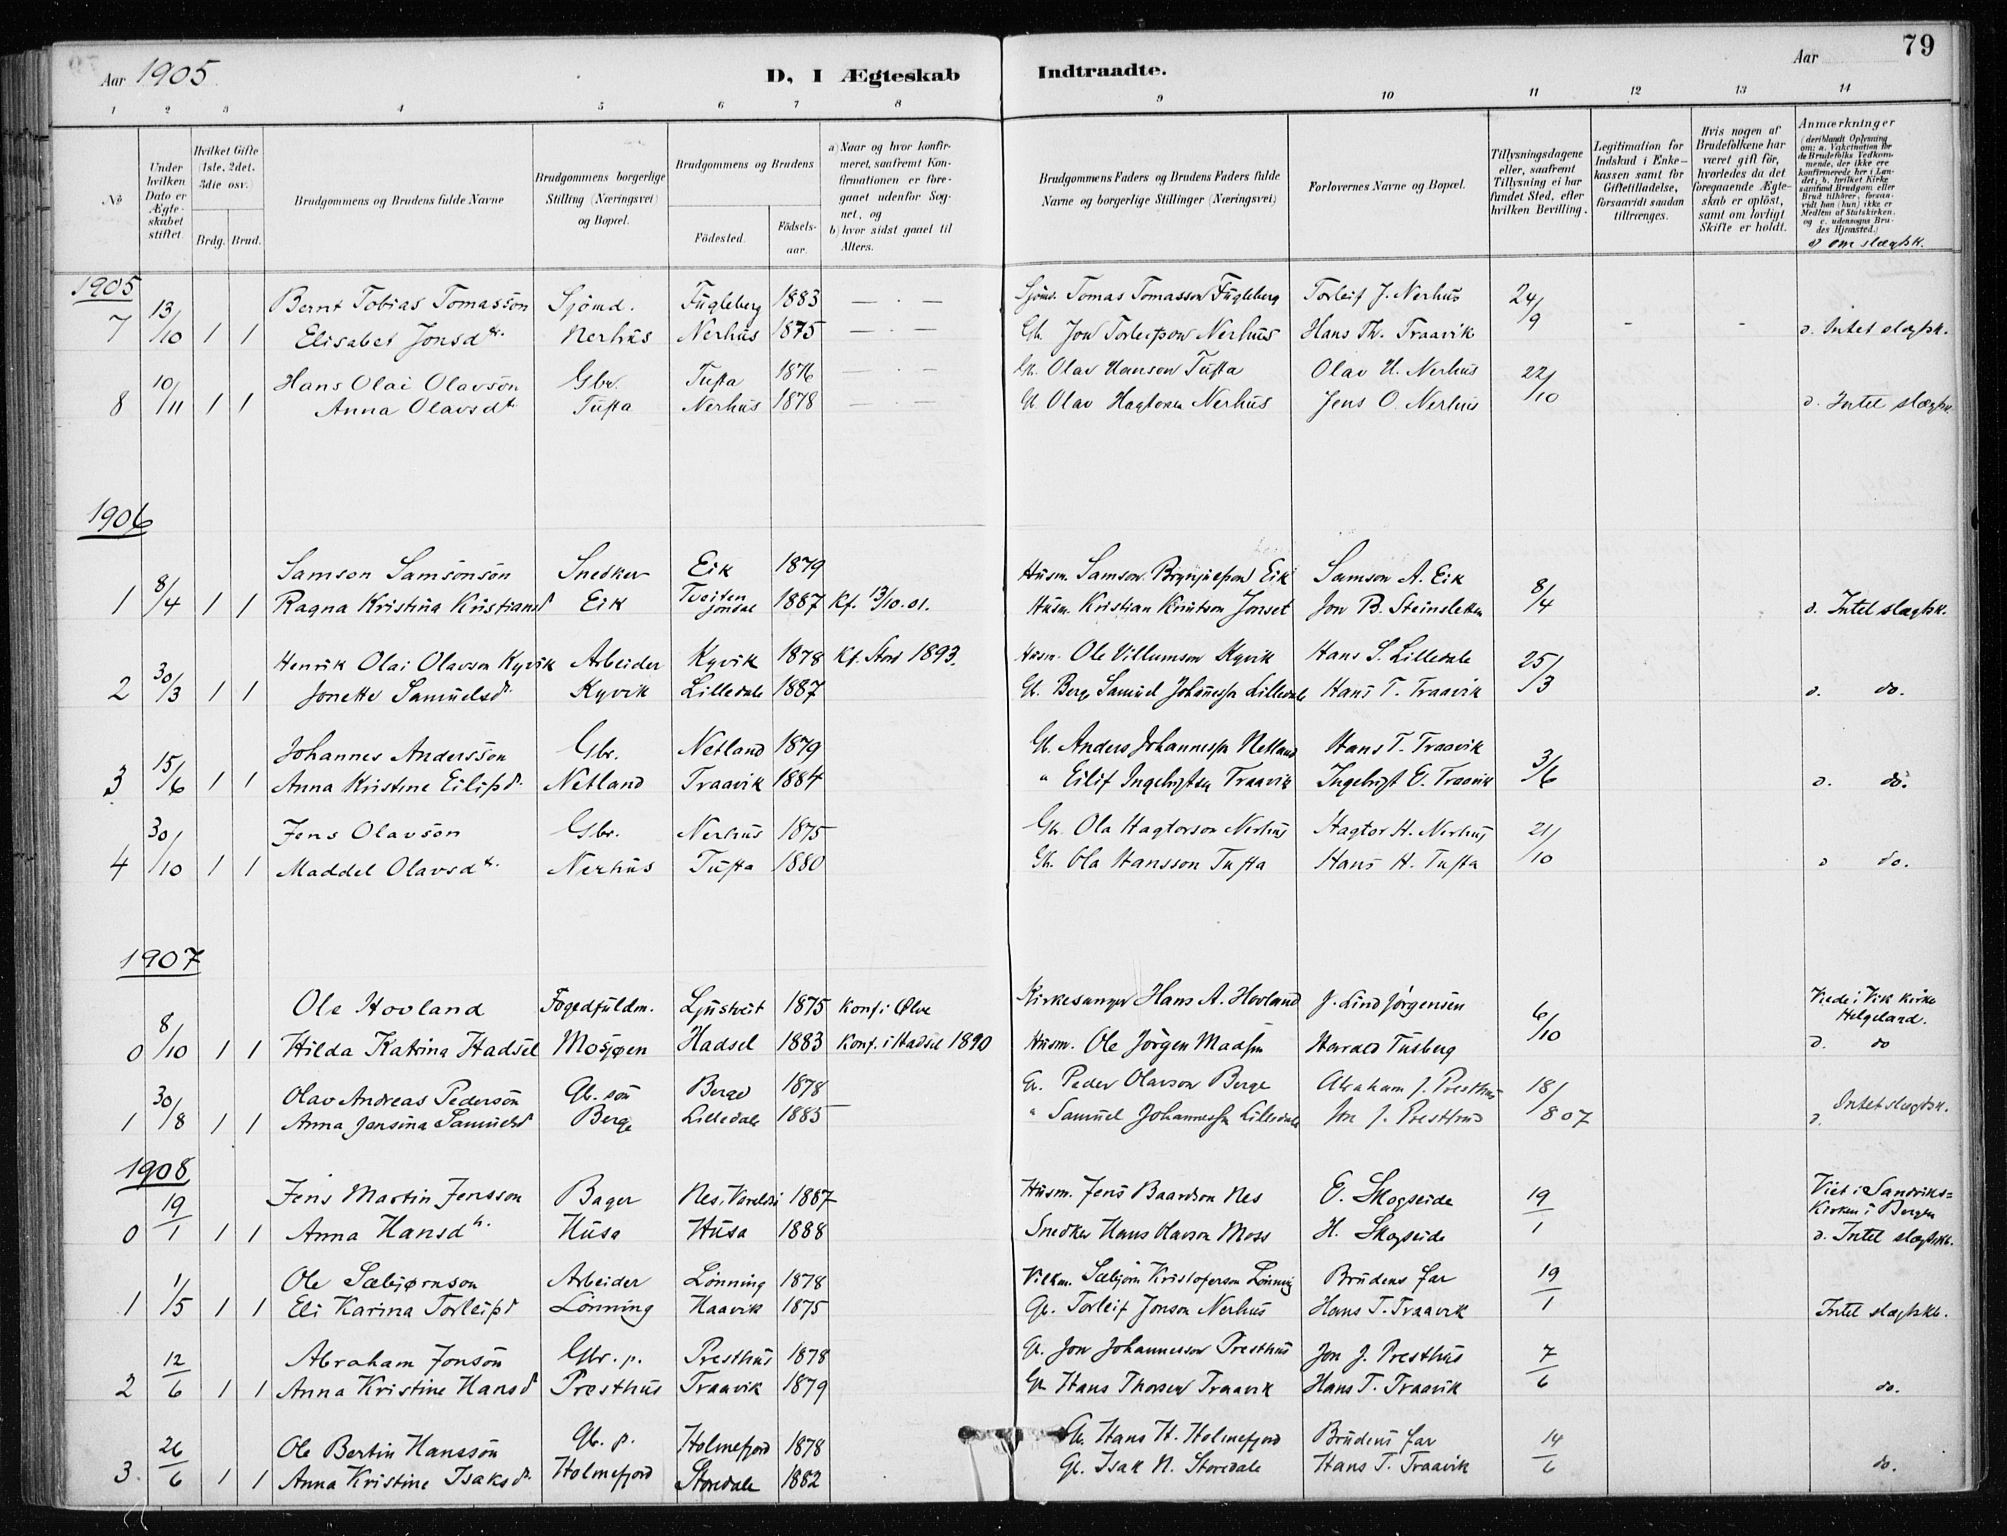 Aar 1905 D, I Ægteskab Indtraadte. Aar 79
1 2 3 4 5 6 7 8 9 10 11 12 13 14
No
Under hvilken Dato er Ægteskabet stiftet.
Hvilket Gifte (1ste, 2det, 3die osv.)
Brdg. Brud.
Brudgommens og Brudens fulde Navne
Brudgommens borgerlige Stilling (Næringsvei) og Bopæl.
Brudgommens og Brudens
Fødested. Fødselsaar.
a) Naar og hvor konfirmeret, saafremt Konfirmationen er foregaaet udenfor Sognet, og
b) hvor sidst gaaet til Alters.
Brudgommens Faders og Brudens Faders fulde Navne og borgerlige Stillinger (Næringsvei)
Forlovernes Navne og Bopæl.
Tillysningsdagene eller, saafremt Tillysning ei har fundet Sted, efter hvilken Bevilling.
Legitimation for Indskud i Enkekassen samt for Giftetilladelse, forsaavidt saadan tiltrænges.
Hvis nogen af Brudefolkene har været gift før, hvorledes da det foregaaende Ægteskab er opløst, samt om lovligt Skifte er holdt.
Anmærkninger (deriblandt Oplysning om: a. Vakcination for de Brudefolks Vedkommende, der ikke ere konfirmerede her i Landet; b. hvilket Kirkesamfund Brudgom eller Brud tilhører, forsaavidt han (hun) ikke er Medlem af Statskirken, og c. udensogns Brudes Hjemsted.)
d om slægtsk.
1905
13/10 Bernt Tobias Tomassön Sjömd. Fugleberg 1883 — . — Sjöm. Tomas Tomasson Fugleberg Torleif J. Nerhus 24/9
7 1 1 Elisabet Jonsdtr. Nerhus Nerhus 1875 — . — Gb. Jon Torleifson Nerhus Hans Th. Traavik - - d. Intet slægtsk.
10/11 Hans Olai Olavsön Gbr. Tufta 1876 — . — Gb. Olav Hanson Tufta Olav H. Nerhus 22/10
8 1 1 Anna Olavsdt. Tufta Nerhus 1878 — . — Gb. Olav Hagtorsen Nerhus Jens O. Nerhus d. Intet slægtsk.
1906
8/4 Samson Samsönsön Snedker Eik 1879 Husm. Samson Brynjulfson Eik Samson A. Eik 8/4
1 1 1 Ragna Kristina Kristiansd Eik Tveiten Jondal 1887 Kf. 13/10.01. Husm. Kristian Knutson Jonset Jon B. Steinsletten d. Intet slægtsk.
30/3 Henrik Olai Olavson Kyvik Arbeider Kyvik 1878 Kf. Stord 1893. Husm. Ole Villumson Kyvik Hans S. Lilledale 25/3
2 1 1 Jonette Samuelsdr. Kyvik Lilledale 1887 Gb. Berge Samuel Johannessøn Lilledale Hans T. Traavik d. do.
15/6 Johannes Andersson Gbr. Netland 1879 Gb. Anders Johannessøn Netland Hans T. Traavik 3/6
3 1 1 Anna Kristine Eilifsdr. Netland Traavik 1884 " Eilif Ingebrigtsen Traavik Ingebrigt E. Traavik d. do.
30/10 Jens Olavson Gbr. Nerhus 1875 Gb. Ola Hagtorson Nerhus Hagtor H. Nerhus 21/10
4 1 1 Maddel Olavsdtr. Nerhus Tufta 1880 Gb. Ola Hansson Tufta Hans H. Tufta d do.
1907
8/10 Ole Hovland Fogedfuldm. Ljustveit 1875 Konf. i Ølve Kirkesanger Hans A. Hovland J. Lind Jørgensen 6/10 Viede i Vik kirke Helgeland.
0 1 1 Hilda Katrina Hadsel Mosjøen Hadsel 1883 Konf. i Hadsel 1890 Husm. Ole Jörgen Madsen Harald Tusberg d. do
30/8 Olav Andreas Pedersön Gb. sön Berge 1878 Gr. Peder Olavson Berge Abraham J. Presthus 18/8 07
1 1 1 Anna Jensina Samuelsd Berge Lilledale 1885 " Samuel Johannessøn Lilledale Jon J. Presthus d. Intet slægtsk.
1908
19/1 Jens Martin Jensson Bager Nes, Varaldsø 1887 Husm. Jens Baardson Nes E. Skogseide 19/1 Viet i Sandvikskirken i Bergen
0 1 1 Anna Hansdtr. Husa Husa 1888 Snedker Hans Olavson Moss H. Skogseide d. Intet slægtsk.
1/5 Ole Sæbjørnson Arbeider Lönning 1878 Sæbjörn Kristoferson Lönning Brudens far 19/1
1 1 1 Eli Karina Torleifsd Lönning Haavik 1875 Gb. Torleif Jonson Nerhus Hans T. Traavik Intet slægtsk.
12/6 Abraham Jonsön Gbr. p. Presthus 1878 Gb. Jon Johannesson Presthus Jon J. Presthus 7/6
2 1 1 Anna Kristine Hansd Presthus Traavik 1879 Gb. Hans Thorsen Traavik Hans T. Traavik do.
26/6 Ole Bertin Hanssön Gb. p. Holmefjord 1878 Gb. Hans H. Holmefjord Brudens far 14/6
3. 1 1 Anna Kristine Isaksdr. Holmefjord Storedale 1882 Gb. Isak N. Storedale Hans T. Traavik do.